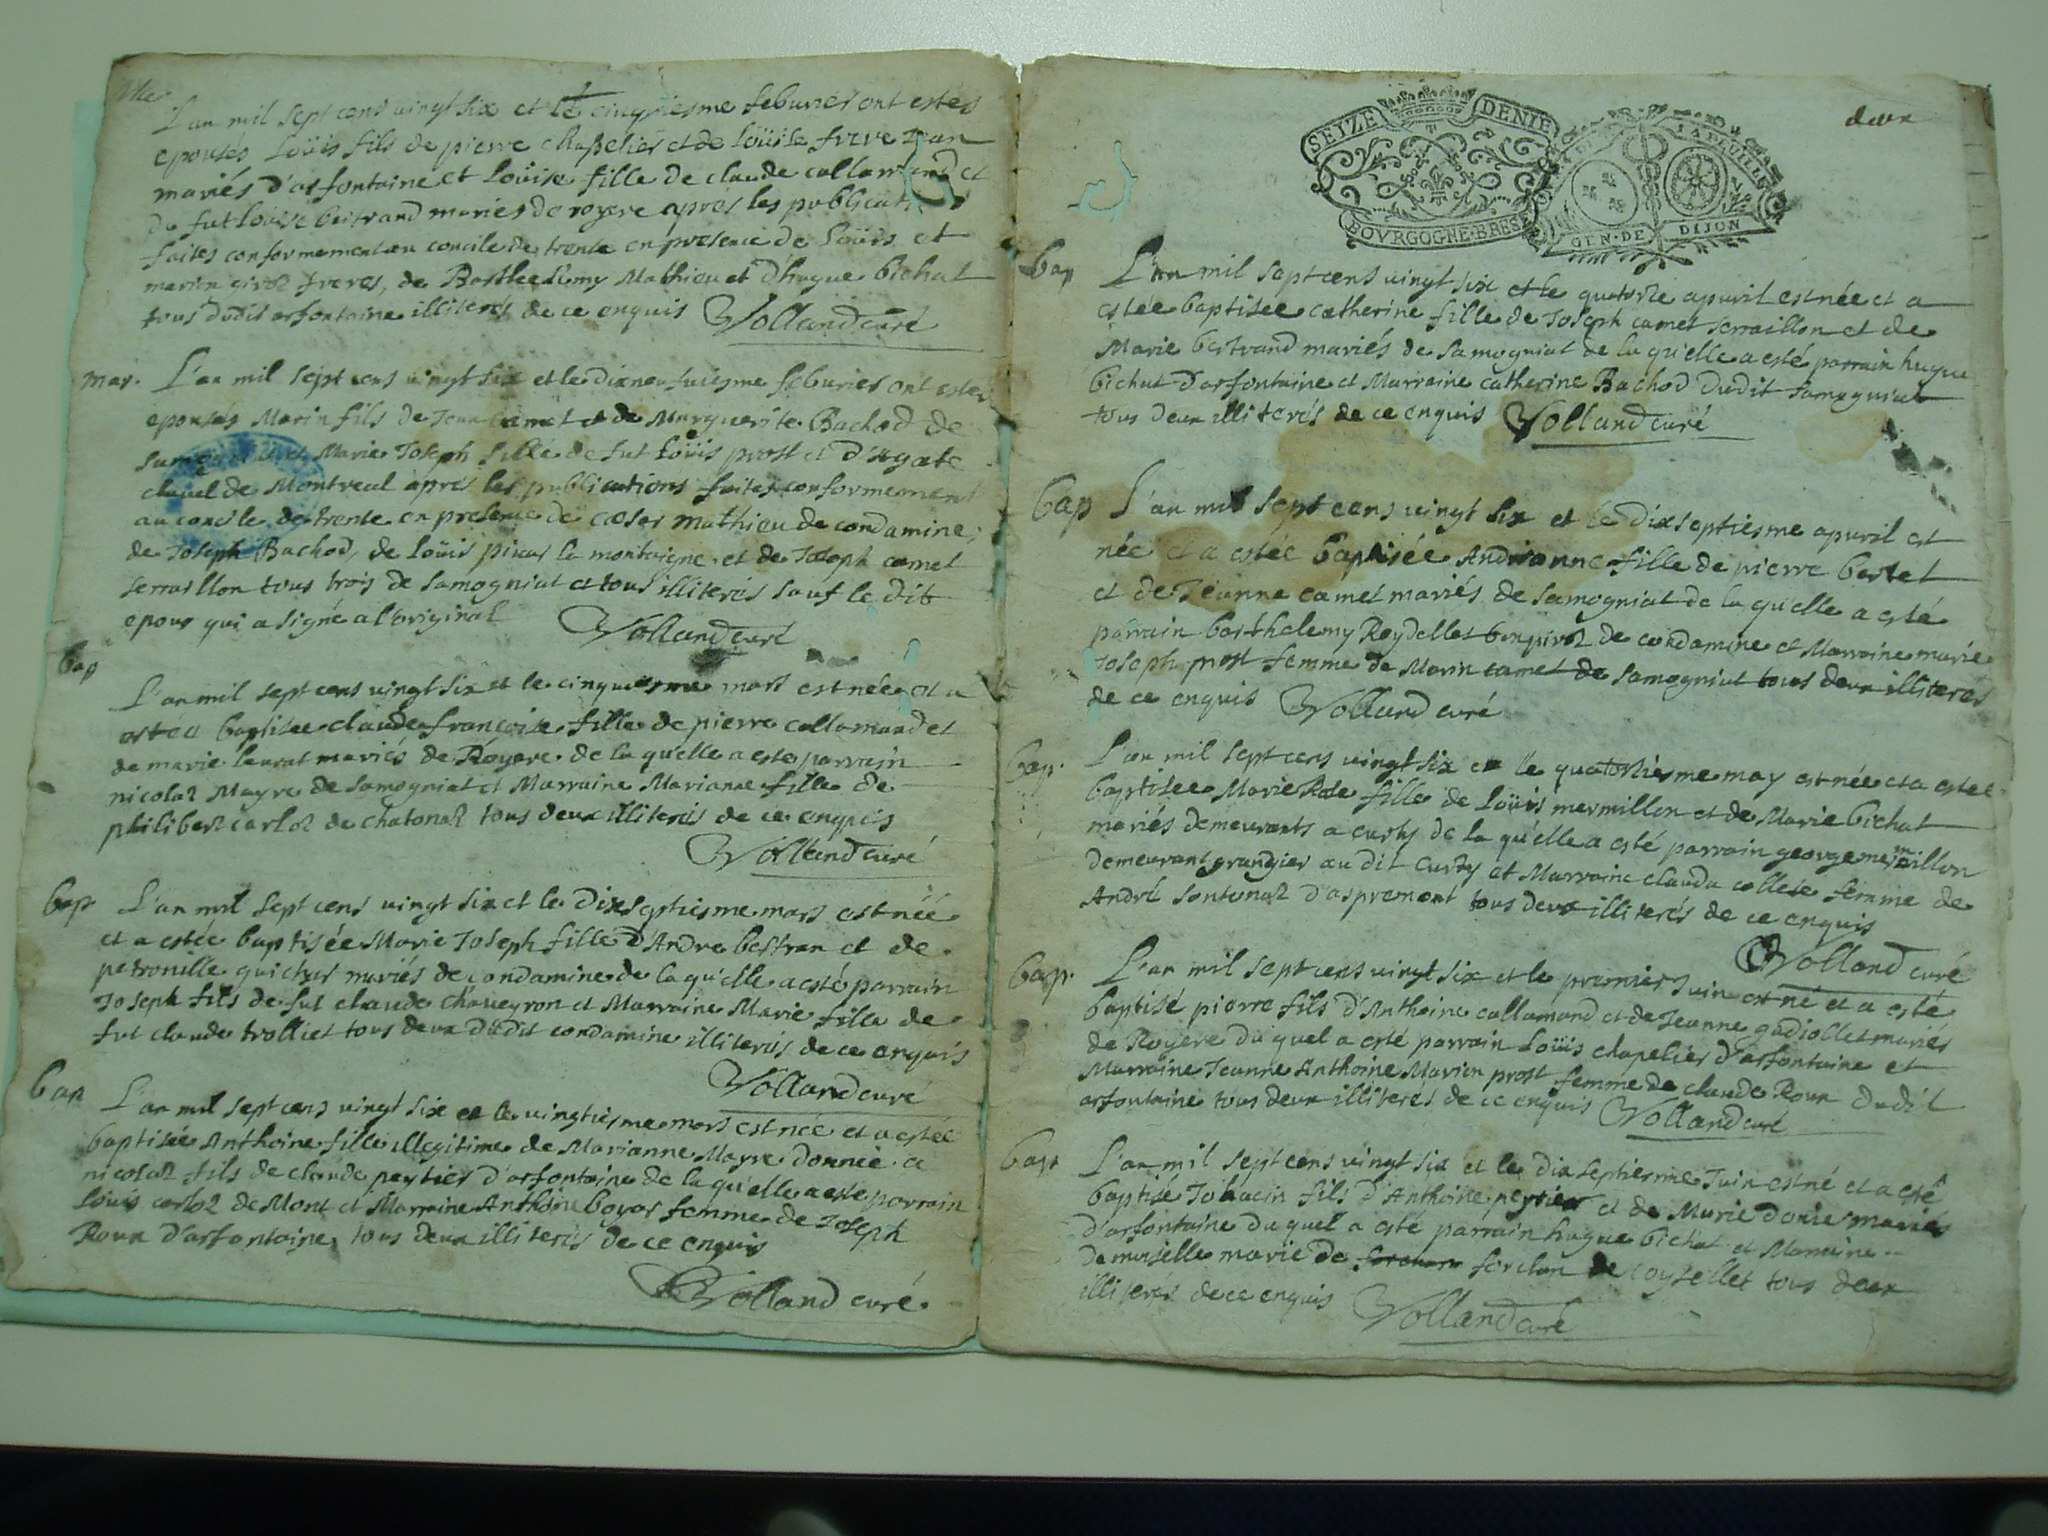 L'an mil sept cens vingt six et le cinquiesme feburier ont estés
epousés Loüis fils de pierre chapelier et de Loüise frere Jean
mariés d'arfontaine et Loüise fille de claude callamand et
de fut Loüise bertrand mariés de royere apres les publicat
faites conformement au concile de trente en presence de Loüis et
marin girod freres, de Barthelemy Mathieu et d'hugue bichat
tous dudit arfontaine illiterés de ce enquis Volland curé
mar. L'an mil sept cens vingt six et le dixneufuiesme feburier ont estés
epousés Marin fils de Jean camet et de Marguerite Bachod de
et Marie Joseph fille de fut Loüis prost et d'Agate
clavel de Montreal apres les publications faites conformement
au concile de trente en presence de cesar mathieu de condamine,
de Joseph Bachod, de Loüis la montaigne et de Joseph camet
serraillon tous trois de samogniat et tous illiterés sauf le dit
epoux qui a signé a l'original Volland curé
bap
L'an mil sept cens vingt six et le cinquiesme mars est née et a
estée baptisee claude françoise fille de pierre callamand et
de marie laurat mariés de Royere de la qu'elle a esté parrain
nicolas Mayre de samogniat et Marraine Marianne fille de
philibert carloz de chatonas tous deux illiterés de ce enquis
Volland curé
bap. L'an mil sept cens vingt six et le dixseptiesme mars est née
et a estée baptisée Marie Joseph fille d'Andre bertran et de
petronille guichar mariés de condamine de la qu'elle a esté parrain
Joseph fils de fut claude chaveyron et Marraine Marie fille de
fut claude trolliet tous deux dudit condamine illiterés de ce enquis
Volland curé
bap L'an mil sept cens vingt six et le vingtiesme mars est née et a estée
baptisée Anthoine fille illegitime de Marianne Mayre donnée a
nicolas fils de claude peytier d'arfontaine de la qu'elle a esté parrain
Louis carloz de Mont et Marraine Anthoine boyar femme de Joseph
Roux d'arfontaine tous deux illiterés de ce enquis
Volland curé.
deux
SEIZE DENIE
BOVRGOGNE·BRESSE
GEN·DE DIJON
bap L'an mil sept cens vingt six et le quatorze apuril est née et a
estée baptisée catherine fille de Joseph camet serraillon et de
Marie bertrand mariés de samogniat de la qu'elle a esté parrain hugue
bichat d'arfontaine et Marraine catherine Bachod dudit samogniat
tous deux illiterés de ce enquis Volland curé
bap L'an mil sept cens vingt six et le dixseptiesme apuril est
née et a estée baptisée Andrianne fille de pierre bertet
et de Jeanne camet mariés de samogniat de la qu'elle a esté
parrain barthelemy Reydellet de condamine et Marraine marie
Joseph prost femme de Marin camet de samogniat tous deux illiterés
de ce enquis Volland curé
bap. L'an mil sept cens vingt six et le quatorziesme may est née et a estée
baptisee Marie Rose fille de Loüis mermillon et de Marie bichat
mariés demeurants a curty de la qu'elle a esté parrain george mermillon
demeurant grangier au dit curty et Marraine clauda collete femme de
André sontonaz d'aspremont tous deux illiterés de ce enquis
Volland curé
bap. L'an mil sept cens vingt six et le premier Juin est né et a esté
baptisé pierre fils d'Anthoine callamand et de Jeanne gadiollet mariés
de Royere du quel a esté parrain Loüis chapelier d'arfontaine et
Marraine Jeanne Anthoine Marion prost femme de claude Roux dudit
arfontaine tous deux illiterés de ce enquis Volland curé
bap L'an mil sept cens vingt six et le dix septiesme Juin est né et a esté
baptisé Johacin fils d'Anthoine peytier et de Marie donie mariés
d'arfontaine du quel a esté parrain hugue bichat et Marraine
demoiselle marie de forclan de coyselet tous deux
illiterés de ce enquis Volland curé